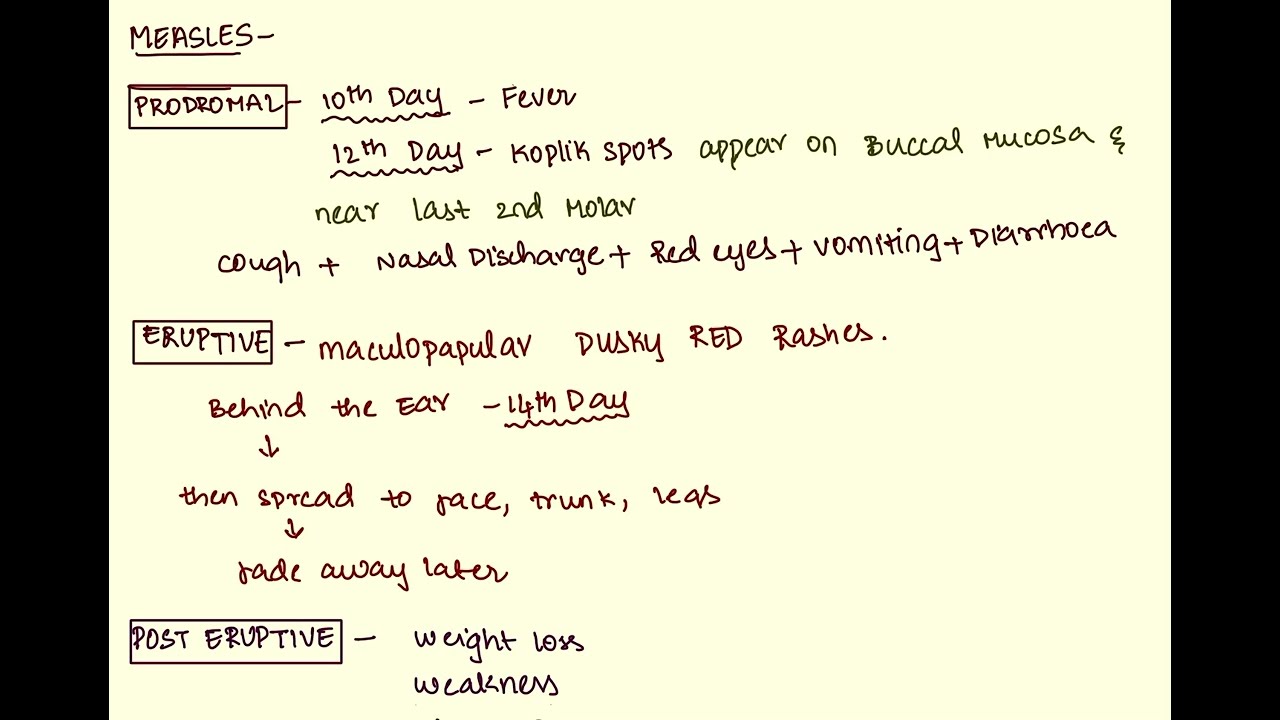 MEASLES-
PRODROMAL - 10th Day - Fever
12th Day - Koplik spots appear on Buccal Mucosa &
near last 2nd Molar
cough + Nasal Discharge + Red eyes + vomiting + Diarrhoea
ERUPTIVE - maculopapular DUSKY RED Rashes.
Behind the Ear - 14th Day
↓
then spread to face, trunk, legs
↓
fade away later
POST ERUPTIVE - weight loss
weakness